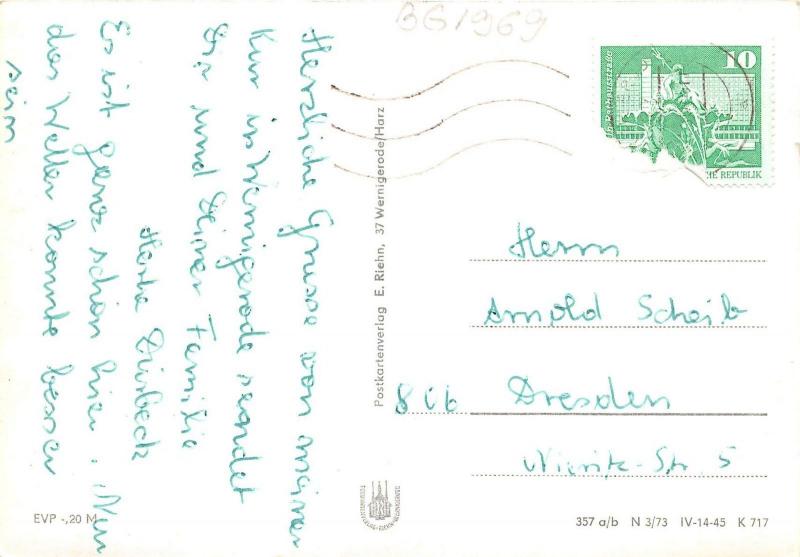 BG1969
Herzliche Grüsse von meiner
Kur in Wernigerode sendet
Dir und Deiner Familie
Herta Dürbeck
Es ist ganz schön hier. Nur
das Wetter konnte besser
sein
Postkartenverlag E. Riehn, 37 Wernigerode/Harz
10
Rathausstraße
REPUBLIK
Herrn
Arnold Scheib
806 Dresden
Nieritz-Str. 5
EVP -,20 M
357 a/b N 3/73 IV-14-45 K 717